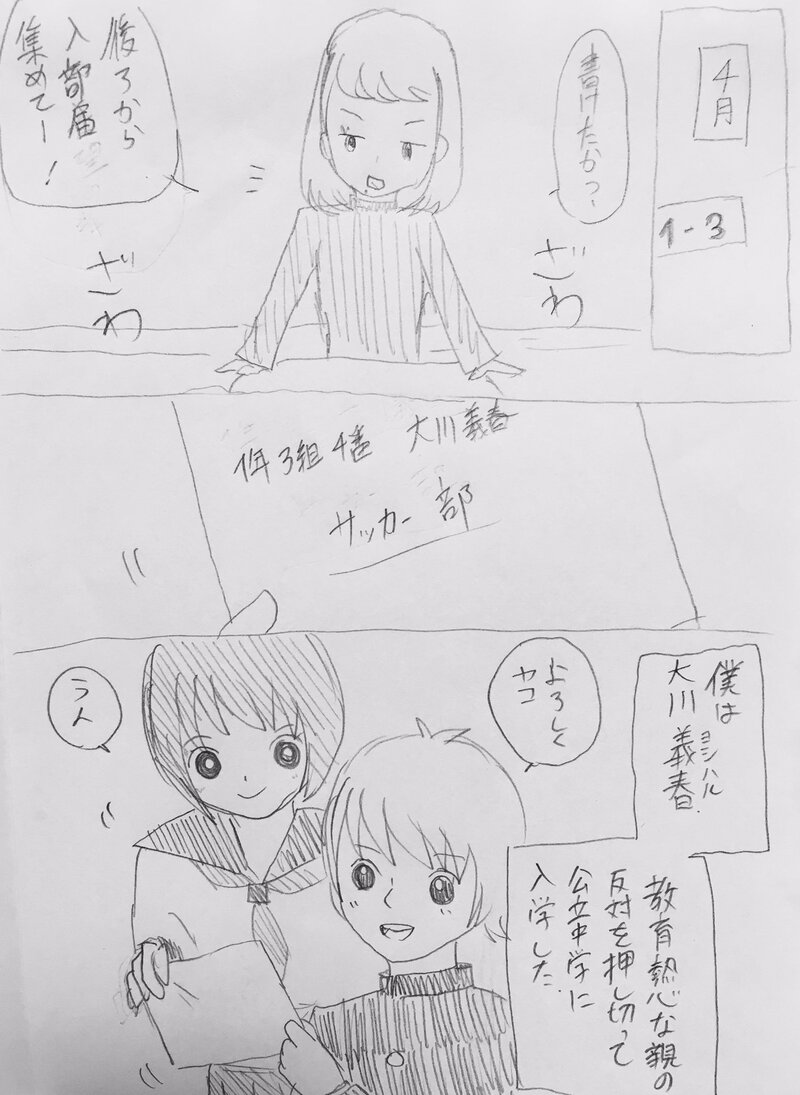 4月
1-3
書けたか?
後ろから
入部届
集めてー!
ざわ
ざわ
1年3組4番 大川義春
サッカー部
僕は
大川義春
ヨシハル
教育熱心な親の
反対を押し切って
公立中学に
入学した.
よろしく
ヤコ
うん